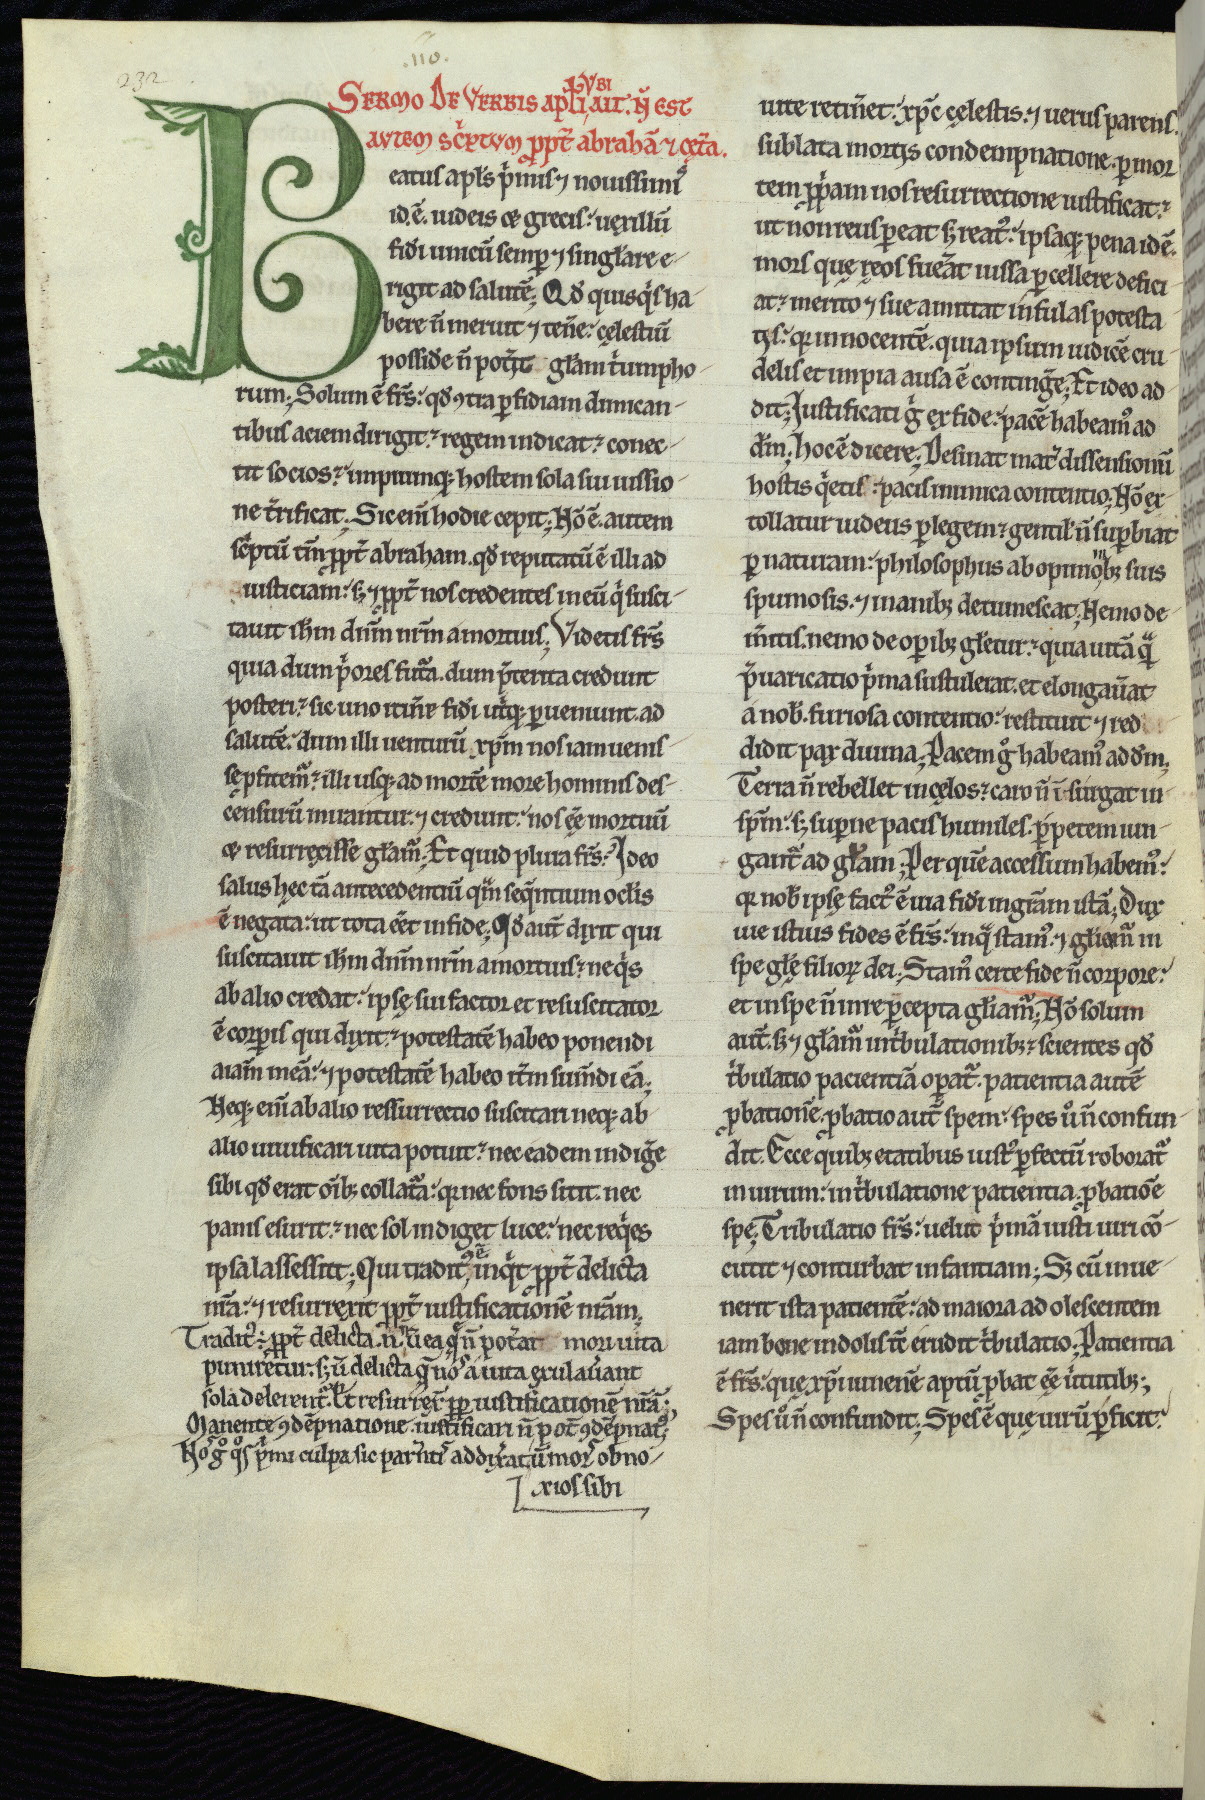 .110.
232
Sermo de verbis apłi vbi ait. n̄ est
autem sc͛ptvm ꝓpt̄ abrahā ⁊ cet̄a.
Beatus apłs p͛mis ⁊ nouissimus
id.ē. iudeis ce grecis: uexillū
fidi unicū semꝑ ⁊ singłare e-
rigit ad salutē; Qđ quisq͛s ha-
bere n̄ meruit ⁊ ten̄e: cęlestiū
posside n̄ pot̄it głam t͛umpho-
rum; Solum ē frs̄: qđ ꝯtra ꝑfidiam dimican-
tibus aciem dirigit: regem indicat: conec-
tit socios: impiumq; hostem sola sui uisio-
ne t̄rificat; Sic eni̅ hodie cepit; Nō ē. autem
sc͛ptū tm̄ ꝓpt̄ abraham. qđ reputatū ē illi ad
iusticiam: sꝫ ⁊ ꝓpt̄ nos credentes in eū q͛ susci-
tauit ihm̄ dnm̄ nrm̄ a mortuis; Videtis frs̄
quia dum p͛ores fut̄a. dum p̄terita credunt
posteri: sic uno itin̄e fidi ut͛q; ꝑueniunt ad
salutē: dum illi uenturū xp̄m nos iam uenis-
sę ꝓfitem̄: illi usq; ad mortē more hominis des-
censurū mirantur. ⁊ credunt: nos ęē mortuū
ce resurrexisse głam̄; Et quid plura frs̄? Ideo
salus hec tā antecedentiū qm̄ seq̄ntium ocłis
ē negata: ut tota eēt in fide; Qđ aut̄ dixit qui
suscitauit ihm̄ dnm̄ nrm̄ a mortuis: ne q͛s
ab alio credat: ipsę sui factor et resuscitator
ē corꝑis qui dixit: potestatē habeo ponendi
aiam̄ meā: ⁊ potestatē habeo it̄m sum̄di eā;
Neq; eni̅ ab alio ressurrectio suscitari neq; ab
alio uiuificari uita potuit: nec eadem indiḡe
sibi qđ erat oi̅bꝫ collat̄a: qr nec fons sitit. nec
panis esurit: nec sol indiget luce: nec req͛es
ipsa lassessit; Qui tradit; ꝯē inq͛t ꝓpt̄ delicta
nr̄a: ⁊ resurrexit ꝓpt̄ iustificationē nr̄am;
Tradit᷒: ꝓpt̄ delicta. n̄ ut̄ ea q̄ n̄ pot̄at mori uita
puniretur: sꝫ ut̄ delicta q̄ nos a uita exulau̅ant
sola delerent͛. Et resurrex̄ ꝓpt̄ iustificationē nr̄ā;
Manente ꝯdēpnatione. iustificari n̄ pot̄ ꝯdēpnat᷒;
Nos g̊ qͦs p͛mi culpa sic parent͛ addixat͛ ut̄ mor̄ obno-
xios sibi
uite retin̄et: xp̄c cęlestis. ⁊ uerus parens.
sublata mortis condempnatione. ꝑ mor
tem ꝓpam nos resurrectione iustificat:
ut non reus ꝑeat sꝫ reat᷒: ipsaq; pena id ē.
mors quę reos fuer̄at iussa ꝑcellere defici
at: merito ⁊ sue amittat infulas potesta
tis: qr innocentē. quia ipsum iudicē cru
delis et impia ausa ē conting̅e; Et ideo ad
dit; Iustificati g̊ ex fide: pacē habeam᷒ ad
dm̄; hoc ē dicere; Desinat mat̄ dissensionū
hostis q͛etis: pacis inimica contentio; Nō ex
tollatur iudeus ꝑ legem: gentił n̄ suꝑbiat
ꝑ naturam: philosophus ab opinionibꝫ suis
spumosis. ⁊ inanibꝫ detumescat; Nemo de
m̄itis. nemo de oꝑibꝫ głetur: quia uitā q̄
p̄uaricatio p͛ma sustulerat. et elongau̅at
a nob̄. furiosa contentio: restituit ⁊ red
didit pax diuina; Pacem g̊ habeam᷒ ad dm̄;
Terra n̄ rebellet in cęlos: caro n̄ insurgat in
spm̄: sꝫ suꝑne pacis humiles. ꝑpetem iun-
gant͛ ad głam; Per quē accessum habem᷒:
qr nob̄ ipsę fact᷒ ē uia fidi in gram̄ istā; Dux
uie istius fides ē frs̄: in q̄ stam᷒. ⁊ głiam̄ in
spe głę filioꝝ dei; Stam᷒ certe fide n̄ corpore:
et in spe n̄ in re ꝑcepta głiam̄; Nō solum
aut̄. sꝫ ⁊ głam̄ in t͛bulationibꝫ: scientes qđ
t͛bulatio pacientiā oꝑat͛. patientia autē
ꝓbationē. ꝓbatio aut̄ spem: spes uͦ n̄ confun-
dit. Ecce quibꝫ etatibus iust᷒ ꝑfectū roborat͛
in uirum: in t͛bulatione patientia. ꝓbatiōe
spe; Tribulatio frs̄: uelut p͛mā iusti uiri cō-
cutit ⁊ conturbat infantiam; Sꝫ cū inue-
nerit ista patientē: ad maiora adolescentem
iam bone indolis tē erudit t͛bulatio; Patientia
ē frs̄: que xp̄i iuuenē aptū ꝓbat ęē u͛tutibꝫ;
Spes uͦ n̄ confundit; Spes ē que uirū ꝑficit: